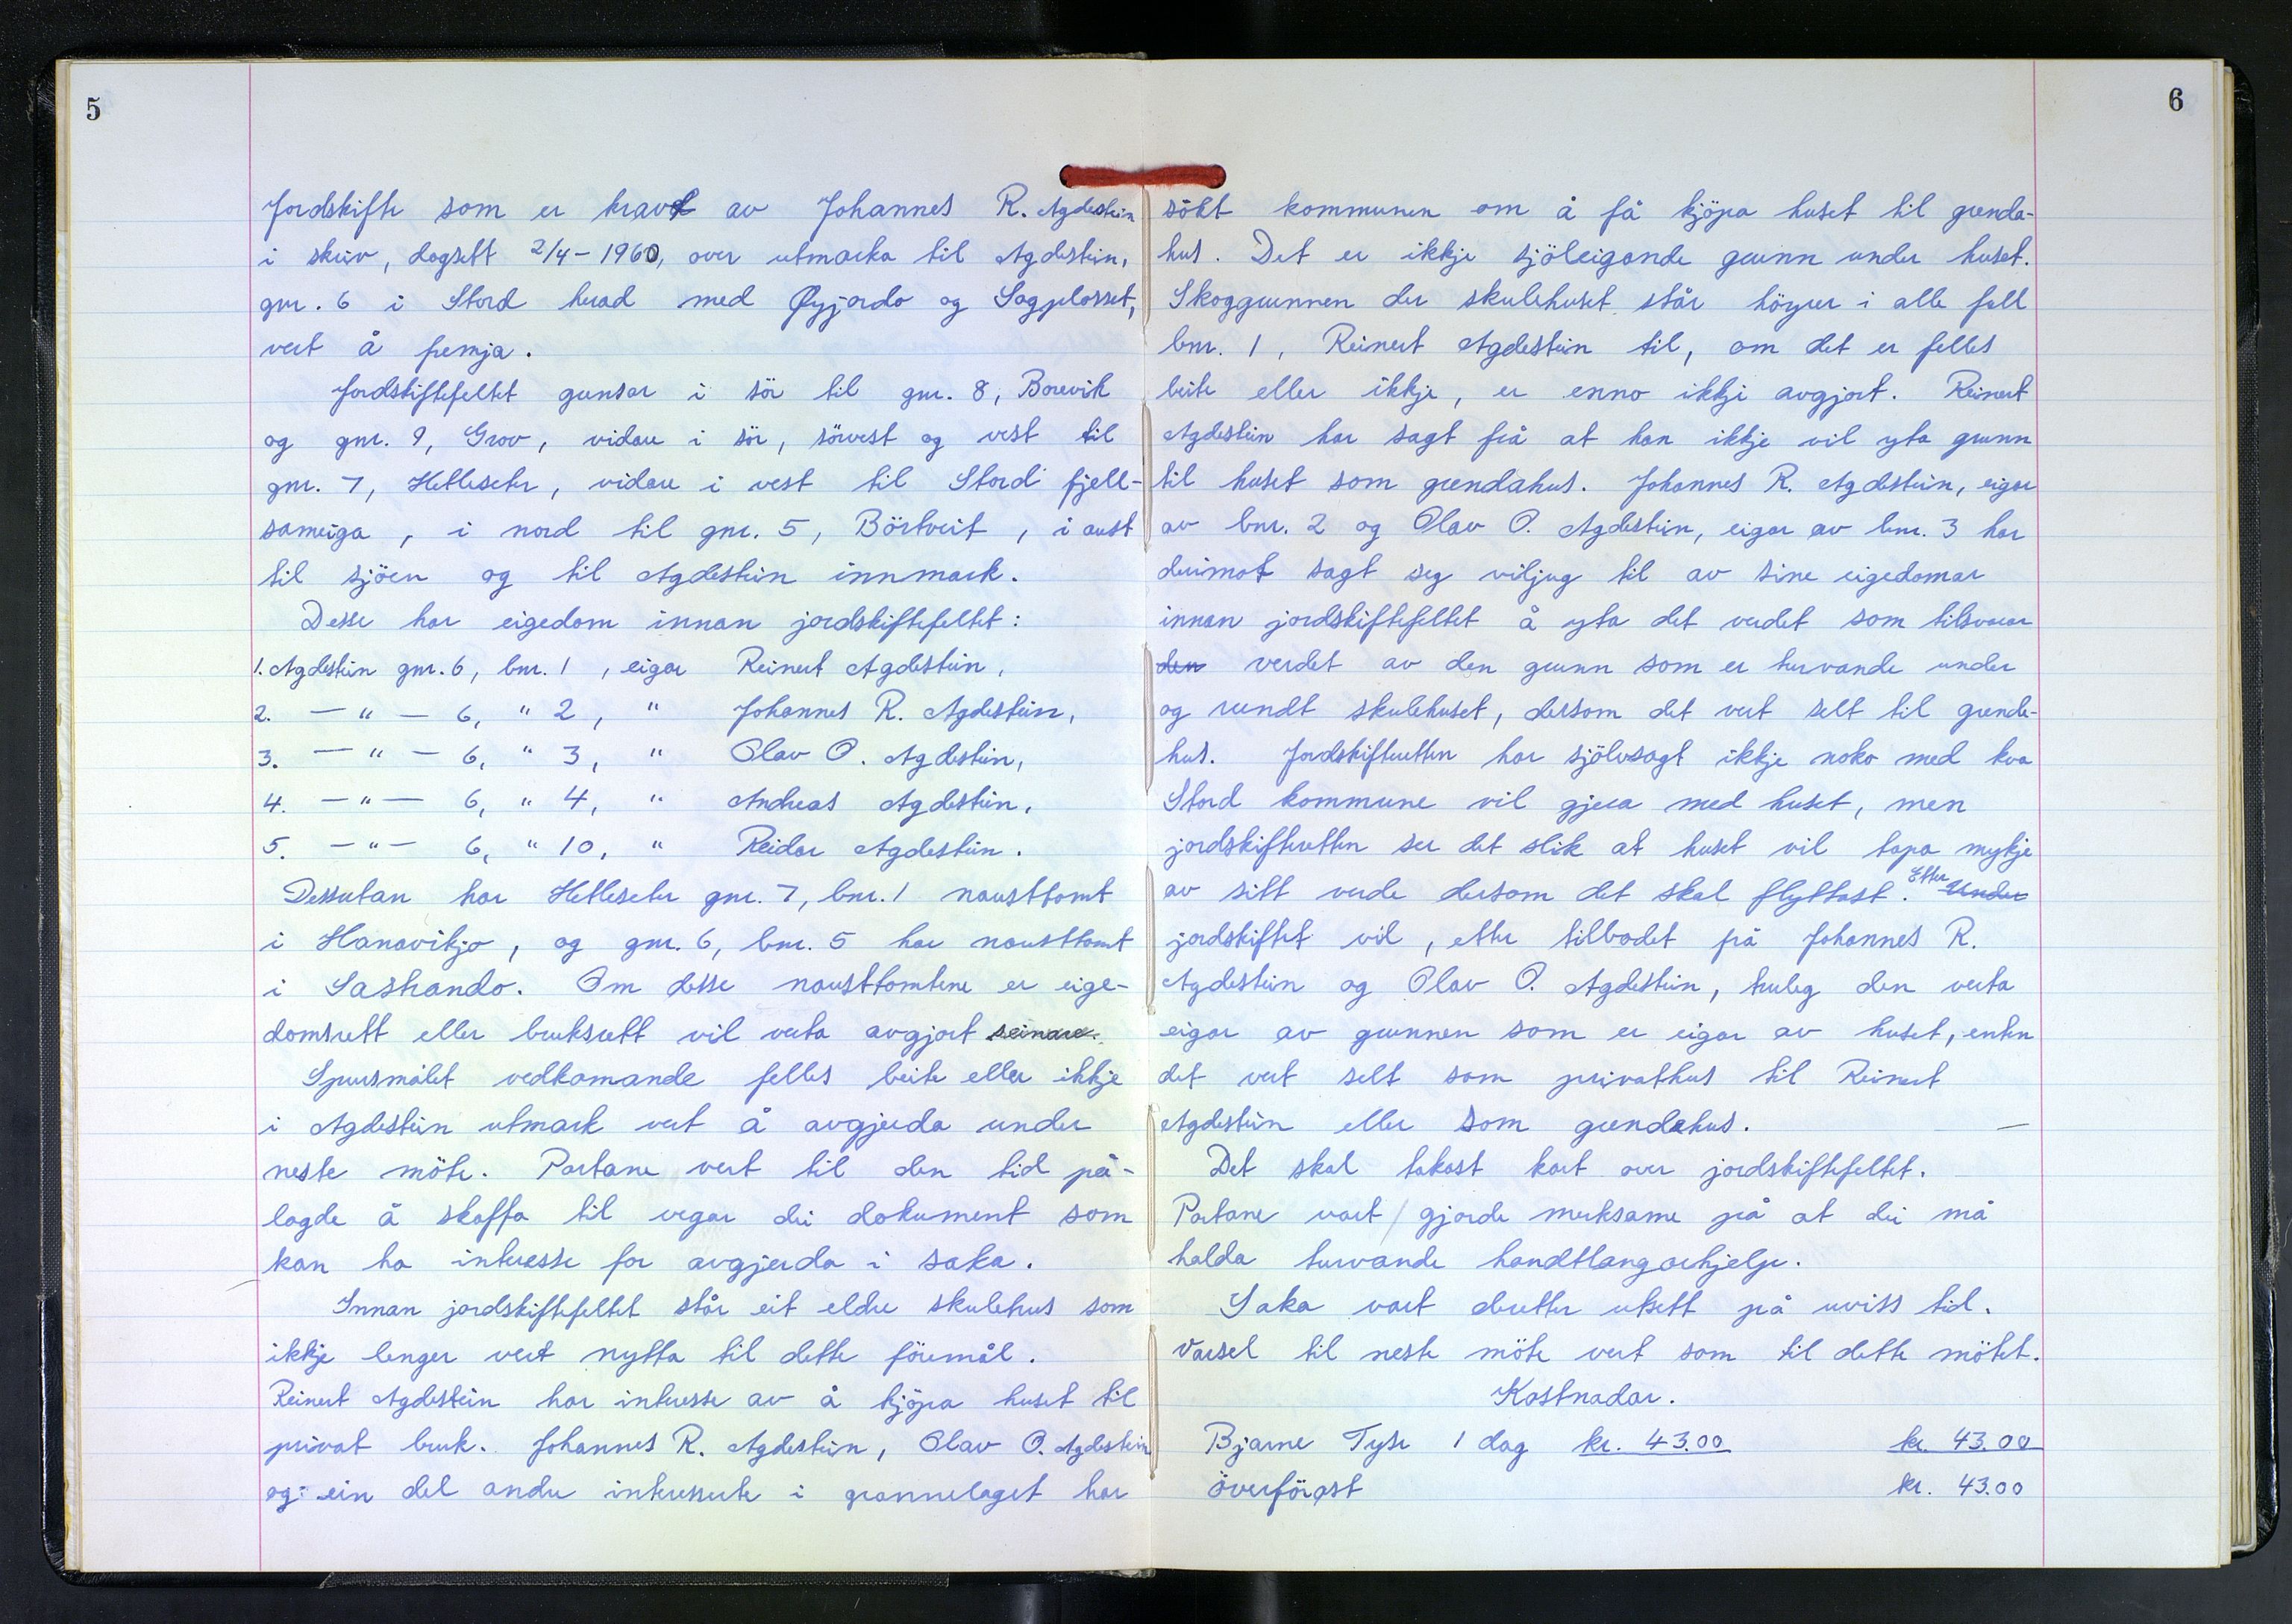 5
Jordskifte som er kravt av Johannes R. Agdestein
i skriv, dagsett 2/4-1960, over utmarka til Agdestein,
gnr. 6 i Stord herad med Øyjordo og Sagplasset,
vert å fremja.
Jordskiftefeltet grensar i sör til gnr. 8, Borevik
og gnr. 9, Grov, vidare i sör, sörvest og vest til
gnr. 7, Hetleseter, vidare i vest til Stord fjell-
sameiga, i nord til gnr. 5, Börtveit, i aust
til sjöen og til Agdestein innmark.
Desse har eigedom innan jordskiftefeltet:
1. Agdestein gnr. 6, bnr. 1, eigar Reinert Agdestein,
2. — " — 6, " 2, " Johannes R. Agdestein,
3. — " — 6, " 3, " Olav O. Agdestein,
4. — " — 6, " 4, " Andreas Agdestein,
5. — " — 6, " 10, " Reidar Agdestein.
Dessutan har Hetleseter gnr. 7, bnr. 1 nausttomt
i Hanavikjo, og gnr. 6, bnr. 5 har nausttomt
i Sastrando. Om desse nausttomtene er eige-
domsrett eller bruksrett vil verta avgjort seinare.
Spursmålet vedkomande felles beite eller ikkje
i Agdestein utmark vert å avgjerda under
neste möte. Partane vert til den tid på-
lagde å skaffa til vegar dei dokument som
kan ha interesse for avgjerda i saka.
Innan jordskiftefeltet står eit eldre skulehus som
ikkje lenger vert nytta til dette föremål.
Reinert Agdestein har interesse av å kjöpa huset til
privat bruk. Johannes R. Agdestein, Olav O. Agdestein
og ein del andre interesserte i grannelaget har
6
sökt kommunen om å få kjöpa huset til grenda-
hus. Det er ikkje sjöleigande grunn under huset.
Skoggrunnen der skulehuset står höyrer i alle fall
bnr. 1, Reinert Agdestein til, om det er felles
beite eller ikkje, er enno ikkje avgjort. Reinert
Agdestein har sagt frå at han ikkje vil yta grunn
til huset som grendahus. Johannes R. Agdestein, eigar
av bnr. 2 og Olav O. Agdestein, eigar av bnr. 3 har
derimot sagt seg viljug til av sine eigedomar
innan jordskiftefeltet å yta det verdet som tilsvarar
den verdet av den grunn som er turvande under
og rundt skulehuset, dersom det vert selt til grende-
hus. Jordskifteretten har sjölvsagt ikkje noko med kva
Stord kommune vil gjera med huset, men
jordskifteretten ser det slik at huset vil tapa mykje
av sitt verde dersom det skal flyttast. Etter Under
jordskiftet vil, etter tilbodet frå Johannes R.
Agdestein og Olav O. Agdestein, truleg den verta
eigar av grunnen som er eigar av huset, enten
det vert selt som privathus til Reinert
Agdestein eller som grendahus. —
Det skal takast kart over jordskiftefeltet.
Partane vart / gjorde merksame på at dei må
halda turvande handtlangarhjelp.
Saka vart deretter utsett på uviss tid.
Varsel til neste möte vert som til dette mötet.
Kostnadar.
Bjarne Tyse 1 dag kr. 43.00 kr. 43.00
överförast kr. 43.00